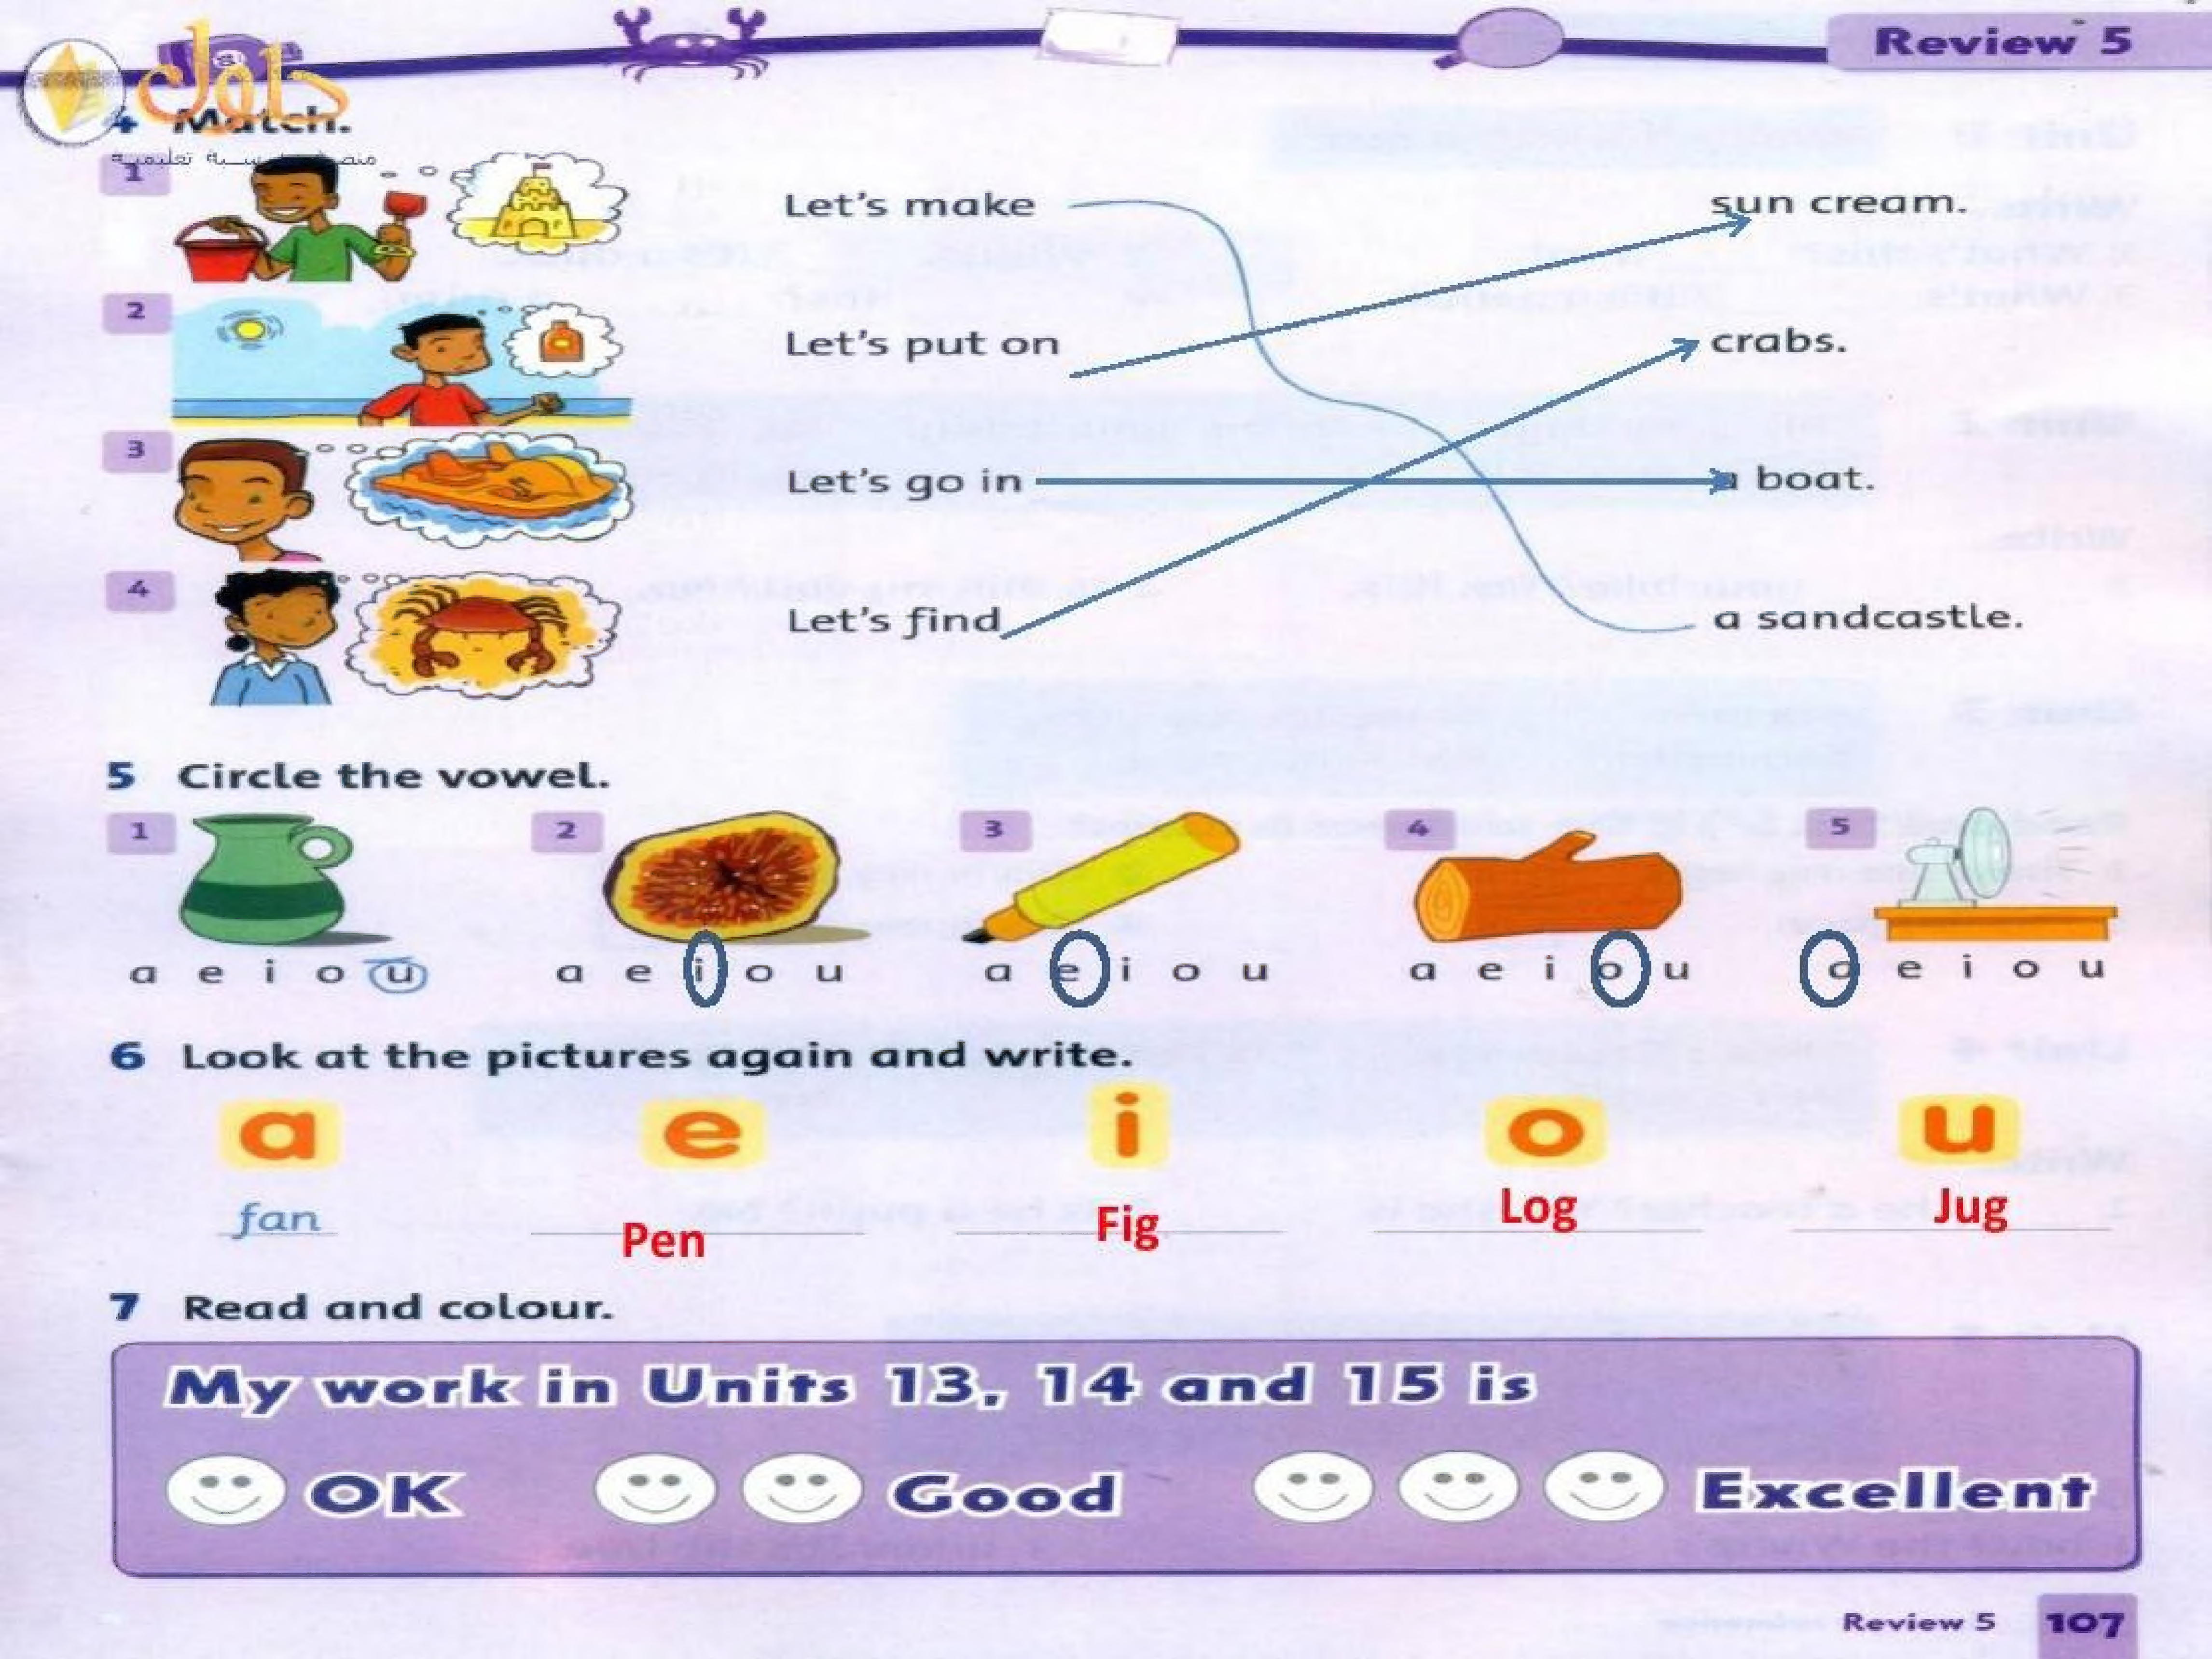 Review 5
حلول
4 Match.
منصة مدرسية تعليمية
1
Let's make
sun cream.
2
Let's put on
crabs.
3
Let's go in
a boat.
4
Let's find
a sandcastle.
5 Circle the vowel.
1 2 3 4 5
a e i o u a e i o u a e i o u a e i o u a e i o u
6 Look at the pictures again and write.
a e i o u
fan Pen Fig Log Jug
7 Read and colour.
My work in Units 13, 14 and 15 is
OK Good Excellent
Review 5 107